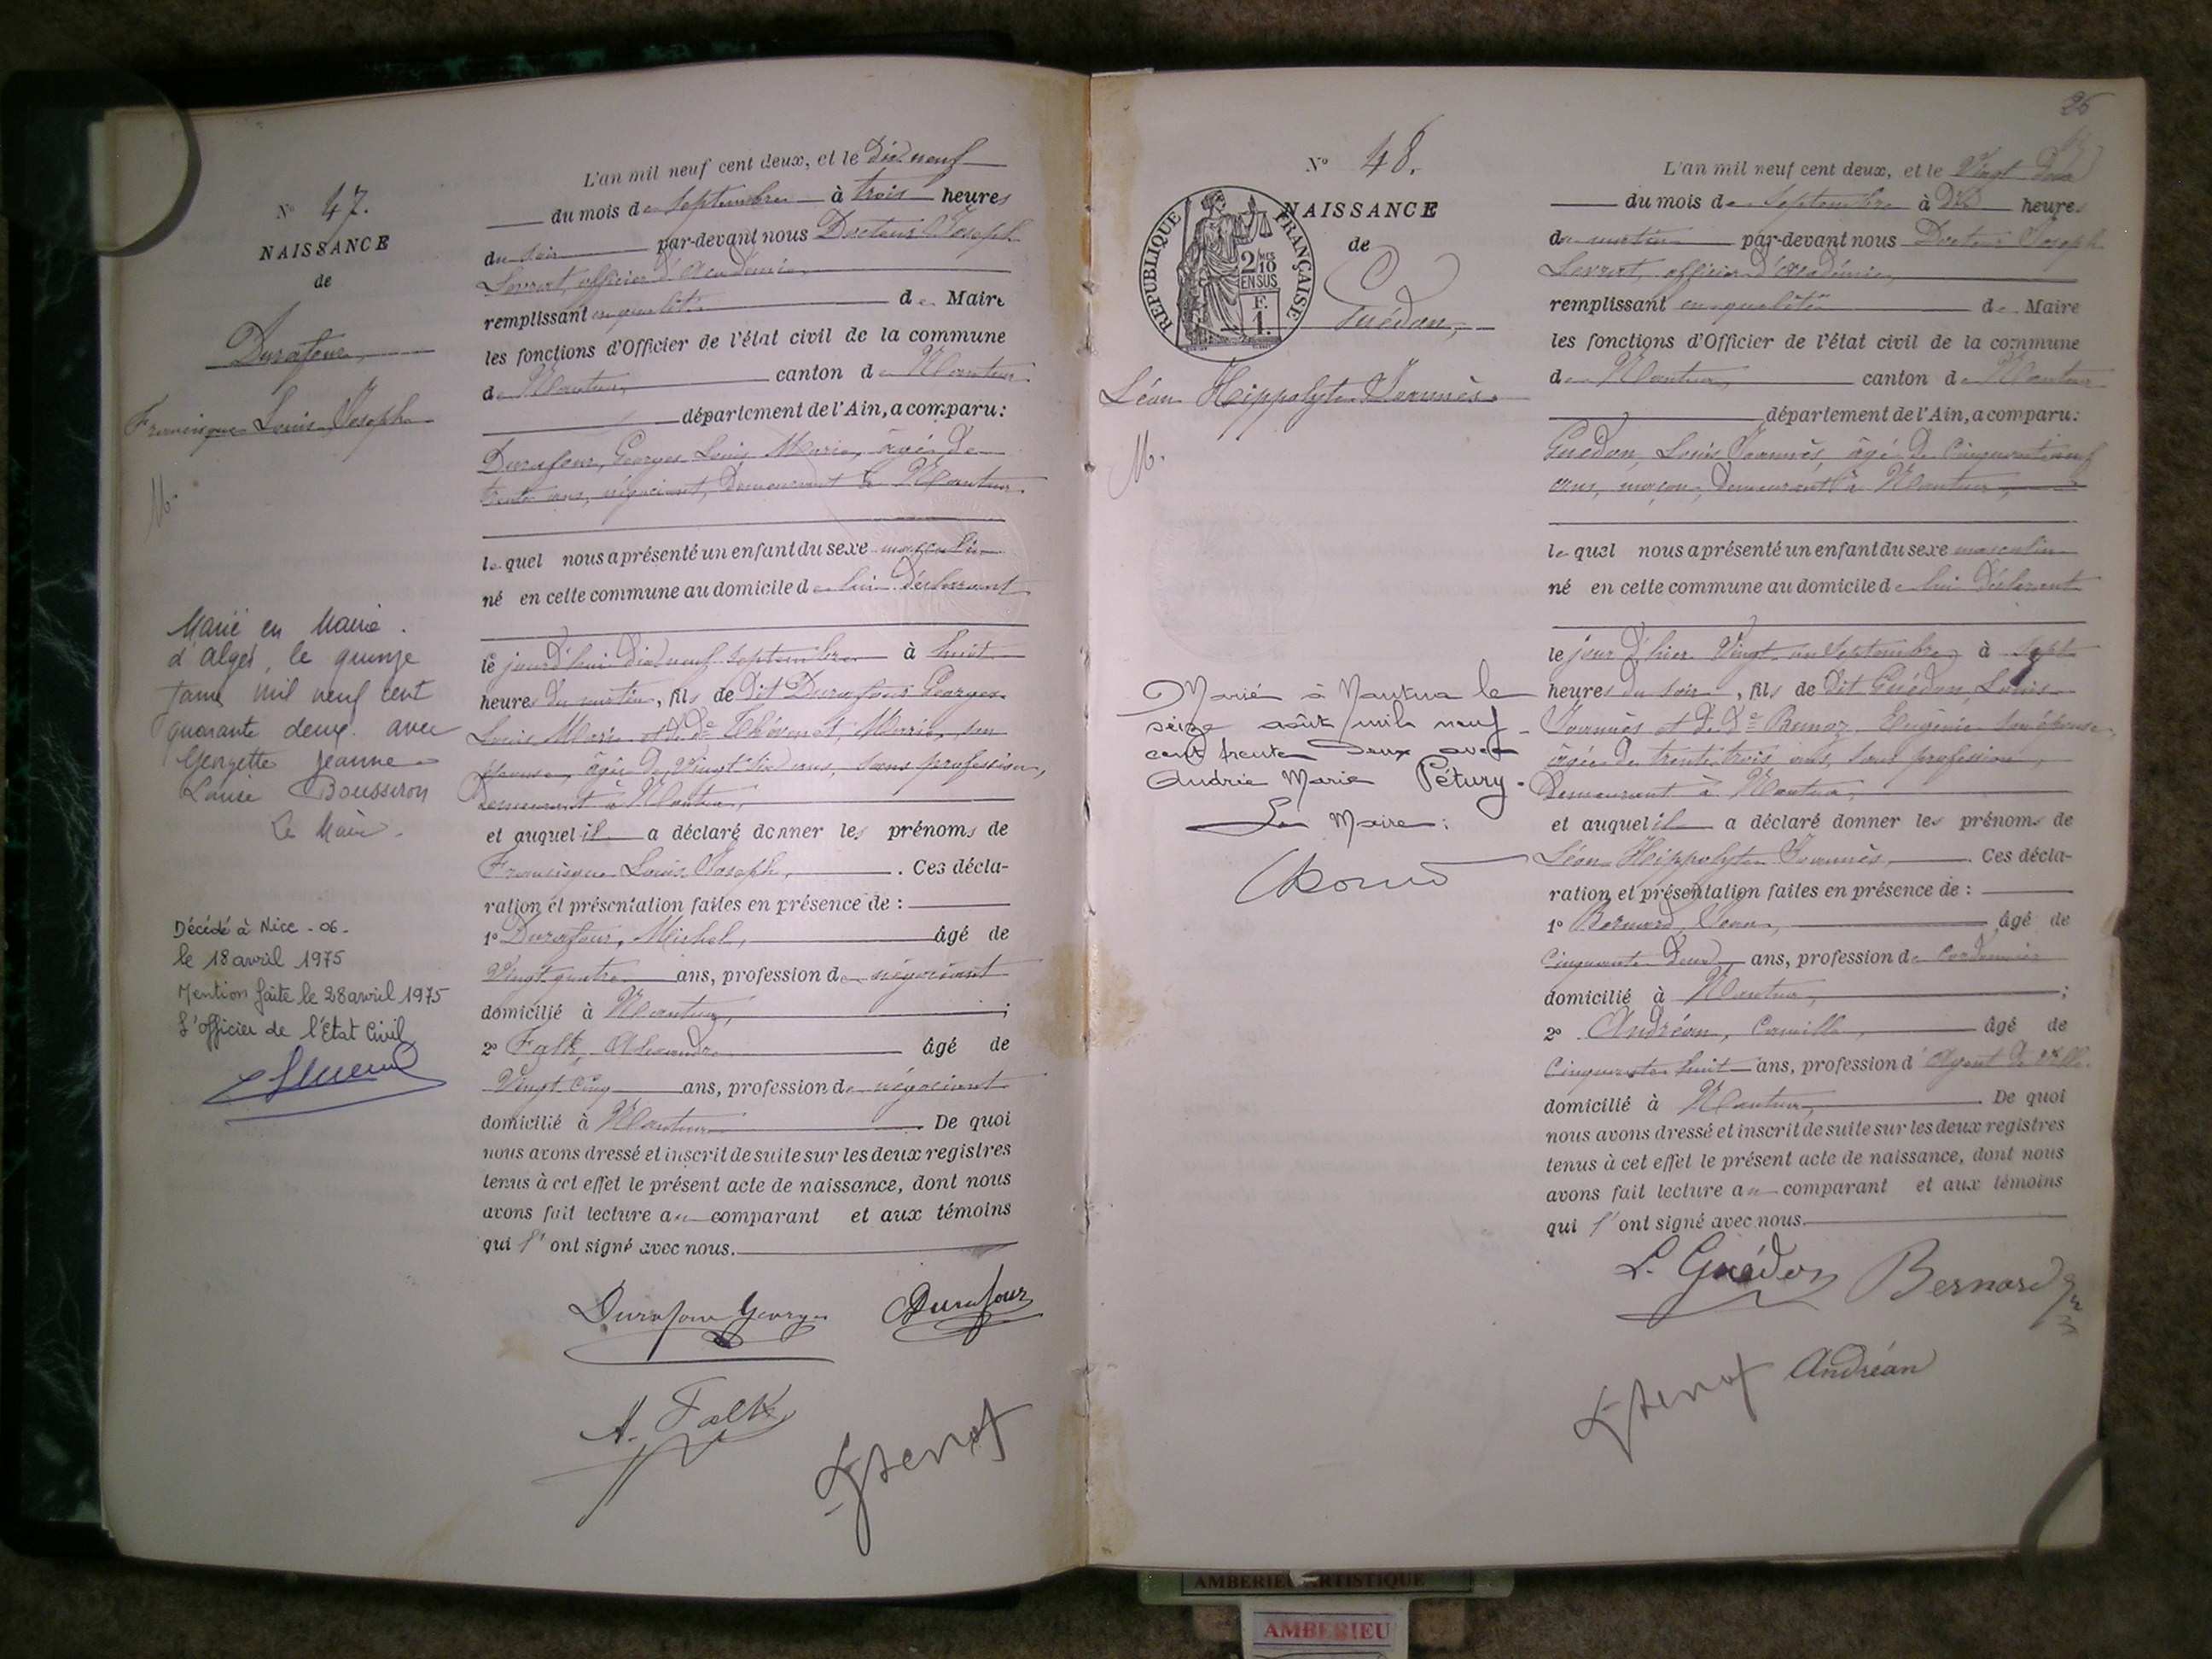 N° 47.
NAISSANCE
de
Durafour,
Francisque Louis Joseph
M.
Marié en Mairie
d'Alger, le quinze
mil neuf cent
quarante deux avec
Georgette Jeanne
Louise Bousseron
Le Maire.
Décédé à Nice - 06 -
le 18 avril 1975
Mention faite le 28 avril 1975
L'officier de l'Etat Civil
L'an mil neuf cent deux, et le Dix neuf
du mois de Septembre à trois heures
du soir par-devant nous Docteur Joseph
officier d'Académie
remplissant en qualité de Maire
les fonctions d'Officier de l'état civil de la commune
de Nantua, canton de Nantua
département de l'Ain, a comparu :
Durafour, Georges Louis Marie, âgé de
trente ans, négociant, demeurant à Nantua.
lequel nous a présenté un enfant du sexe masculin
né en cette commune au domicile de lui déclarant
le jourd'hui dix neuf Septembre à huit
heures du matin, fils de Dit Durafour Georges
Louis Marie et de De Thévenet, Marie, son
épouse, âgée de Vingt Six ans, sans profession,
demeurant à Nantua,
et auquel il a déclaré donner les prénoms de
Francisque Louis Joseph, . Ces décla-
ration et présentation faites en présence de :
1° Durafour, Michel, âgé de
Vingt quatre ans, profession de négociant
domicilié à Nantua, ;
2° Falk, Alexandre âgé de
Vingt Cinq ans, profession de négociant
domicilié à Nantua . De quoi
nous avons dressé et inscrit de suite sur les deux registres
tenus à cet effet le présent acte de naissance, dont nous
avons fait lecture au comparant et aux témoins
qui l'ont signé avec nous.
Durafour Georges Durafour
A. Falk
25
N° 48.
REPUBLIQUE FRANÇAISE
2/10 MES
EN SUS
F.
1.
NAISSANCE
de
Guédon,
Léon Hippolyte Joannès.
M.
Marié à Nantua le
seize août mil neuf
cent trente deux avec
Andrée Marie Pétury.
Le Maire :
L'an mil neuf cent deux, et le Vingt Deux
du mois de Septembre à Dix heures
du matin par-devant nous Docteur Joseph
officier d'Académie,
remplissant en qualité de Maire
les fonctions d'Officier de l'état civil de la commune
de Nantua, canton de Nantua
département de l'Ain, a comparu :
Guédon, Louis Joannès, âgé de Cinquante neuf
ans, maçon, demeurant à Nantua,
lequel nous a présenté un enfant du sexe masculin
né en cette commune au domicile de lui déclarant
le jour d'hier Vingt un Septembre à Sept
heures du soir, fils de Dit Guédon, Louis
Joannès et de De Eugénie son épouse,
âgée de trente trois ans, sans profession,
demeurant à Nantua,
et auquel il a déclaré donner les prénoms de
Léon Hippolyte Joannès, . Ces décla-
ration et présentation faites en présence de :
1° Bernard, Jean, âgé de
Cinquante Deux ans, profession de Cordonnier
domicilié à Nantua, ;
2° Andréan, Camille, âgé de
Cinquante huit ans, profession d'Agent de Ville.
domicilié à Nantua, . De quoi
nous avons dressé et inscrit de suite sur les deux registres
tenus à cet effet le présent acte de naissance, dont nous
avons fait lecture au comparant et aux témoins
qui l'ont signé avec nous.
L. Guédon Bernard
Andréan
AMBERIEU ARTISTIQUE
AMBERIEU